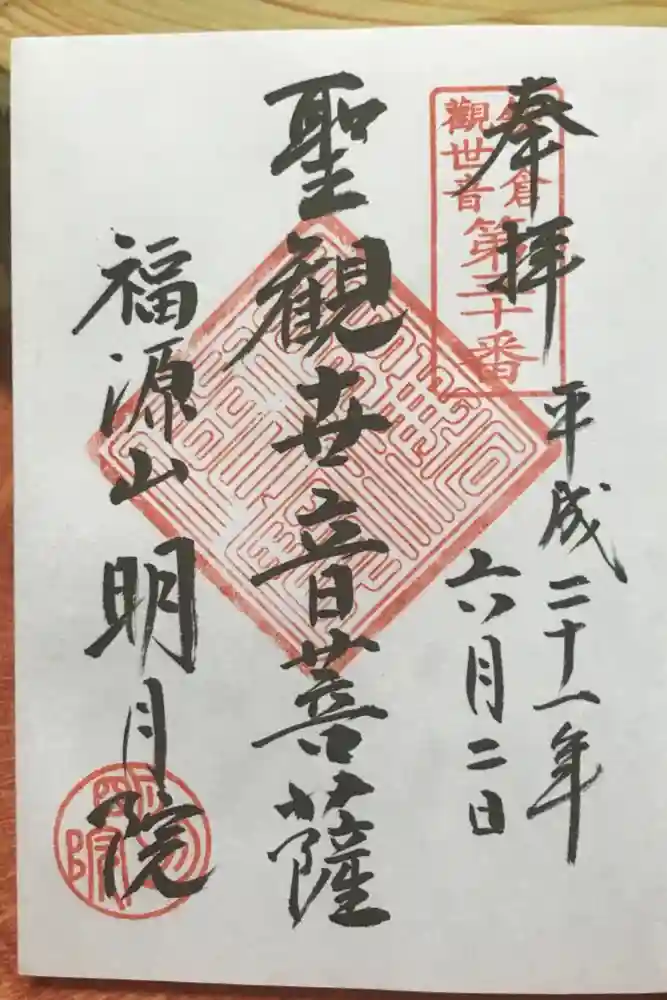 奉拝
平成二十一年
六月二日
鎌倉
觀世音
第三十番
聖観世音菩薩
福源山明月院